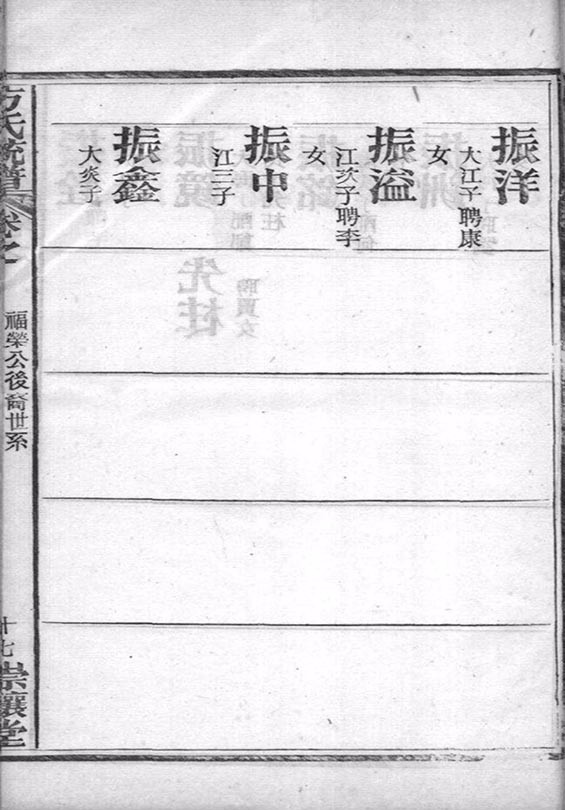 振洋
大江子聘康
女
振溢
江次子聘李
女
振中
江三子
振鑫
大炎子
方氏統譜
福榮公後裔世系
十七